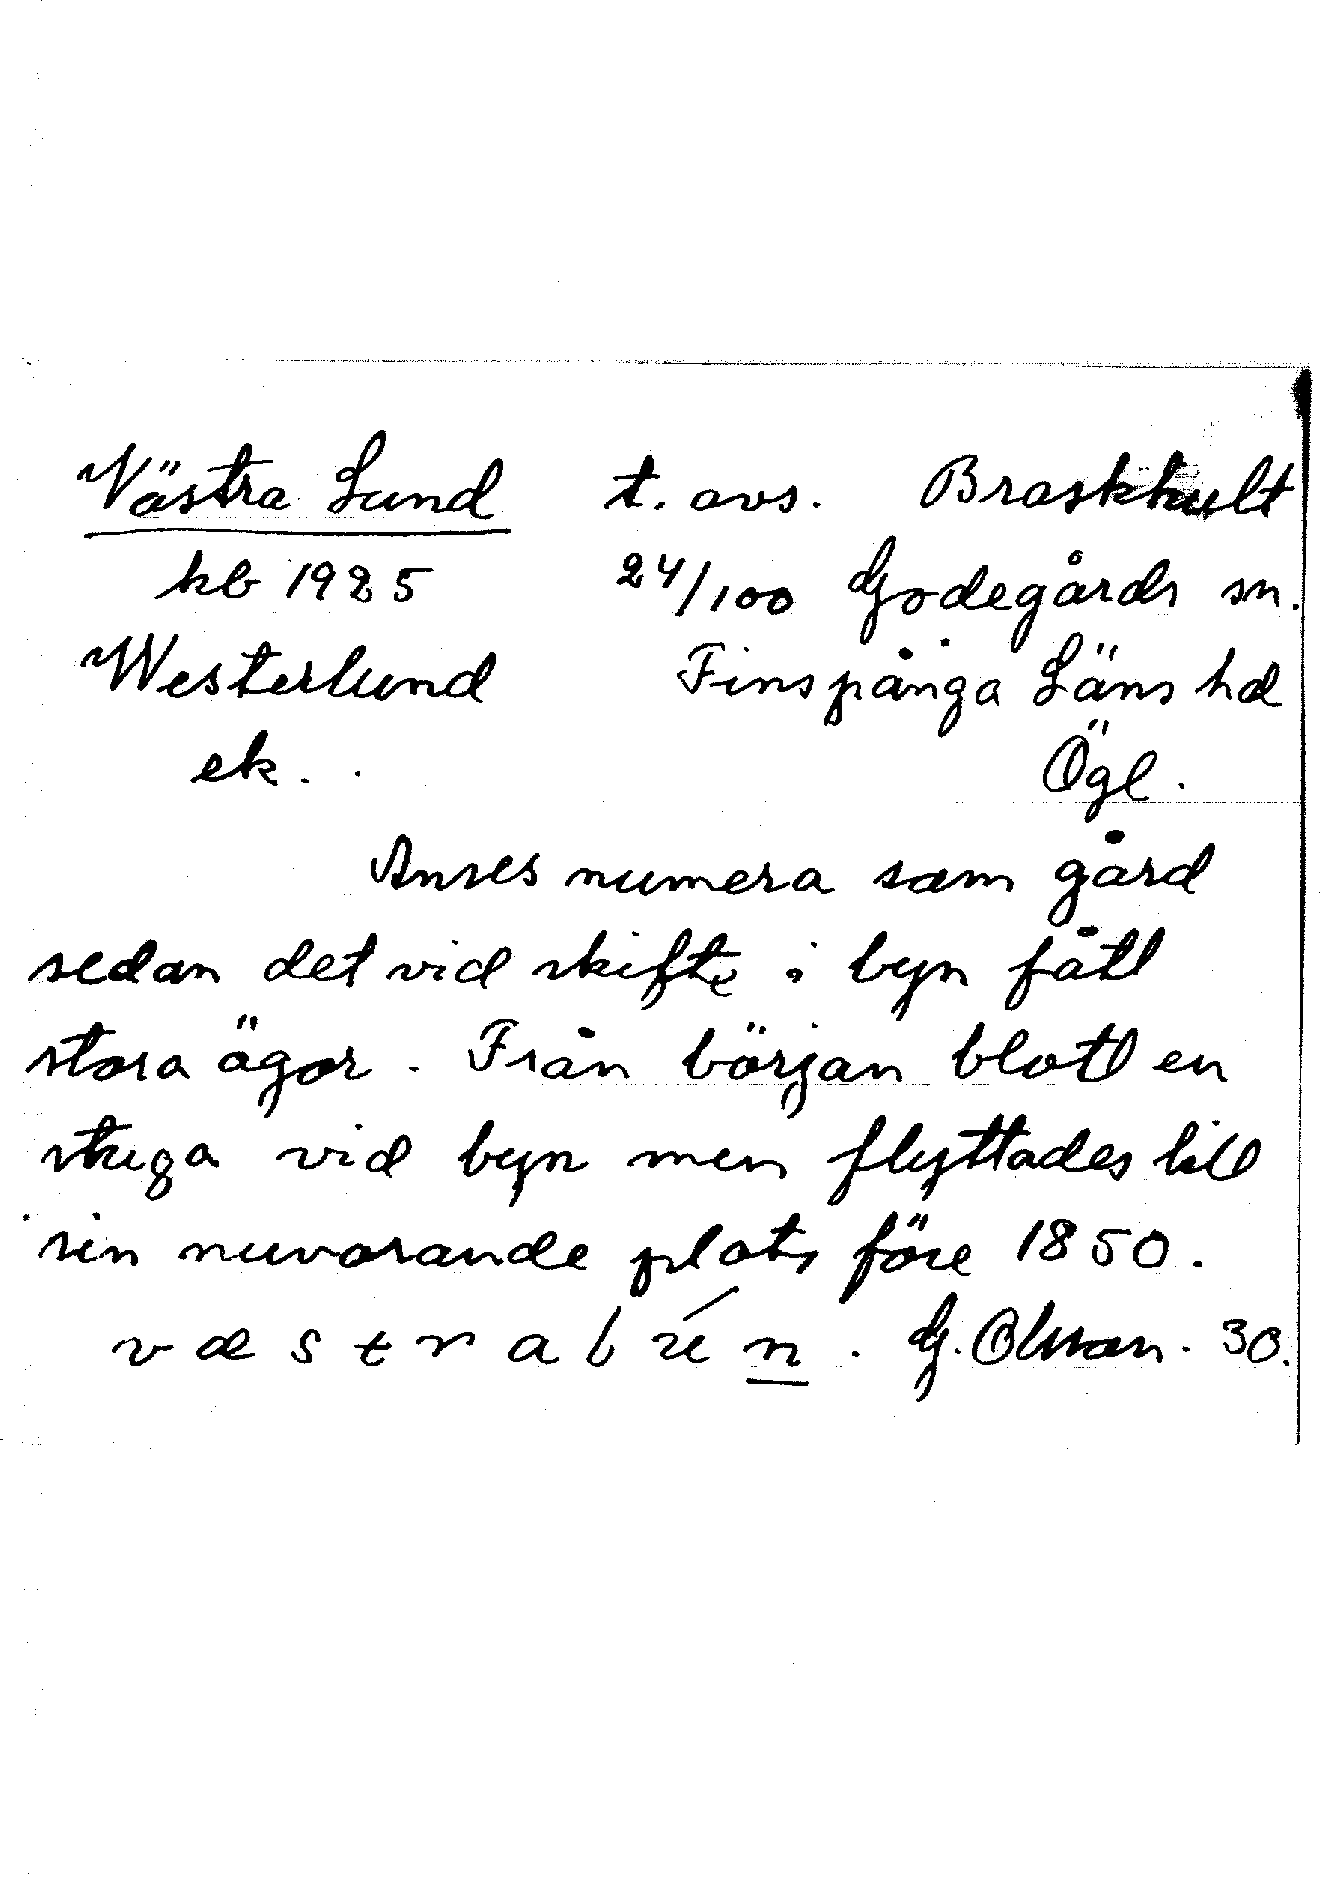 Västra Lund t. avs. Braskhult
kb 1925 24/100 Godegårds sn.
Westerlund Finspånga Läns hd
ek. Ögl.
Anses numera som gård
sedan det vid skifte i byn fått
stora ägor. Från början blott en
stuga vid byn men flyttades till
sin nuvarande plats före 1850.
G. Olsson. 30.